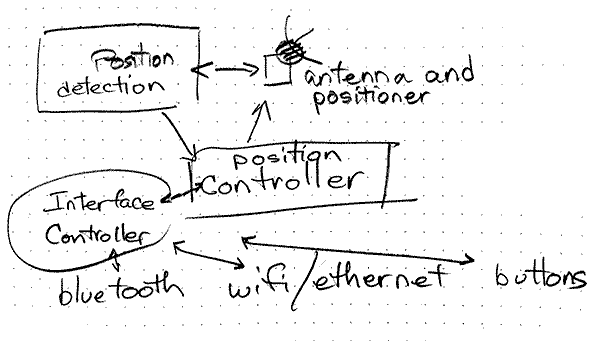 Position
detection
antenna and
positioner
position
Controller
Interface
Controller
bluetooth
wifi/ethernet
buttons